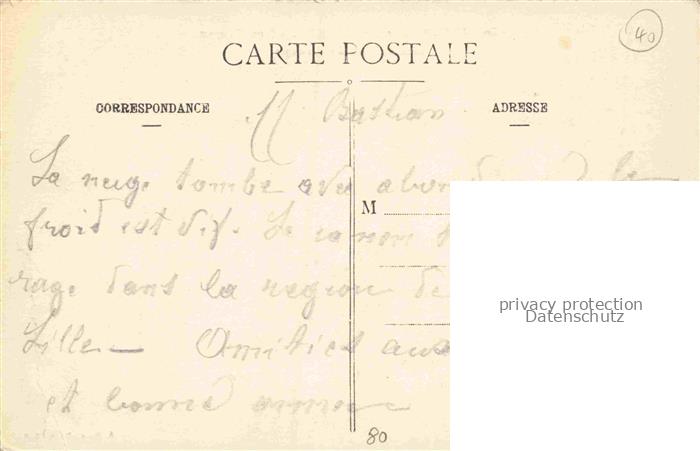 40
CARTE POSTALE
CORRESPONDANCE
ADRESSE
Bastian
La neige tombe avec abon
froid est vif. Le canon
M
rage dans la region de
privacy protection
Datenschutz
Lille Amitiés aux
et bonne année
80